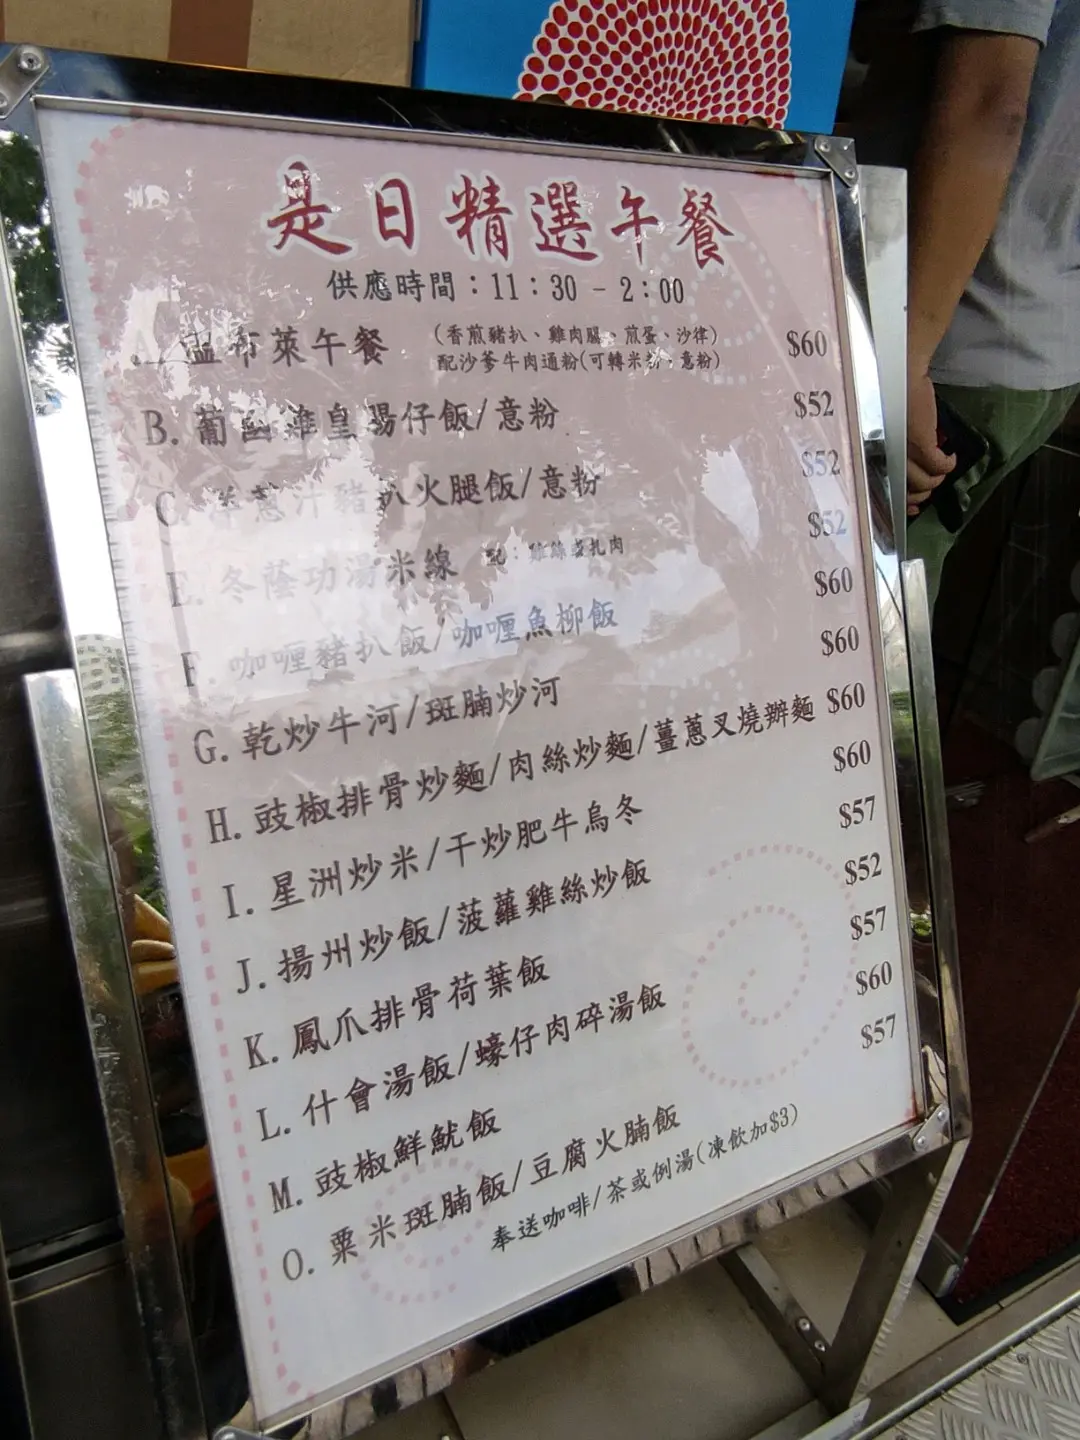 是日精選午餐
供應時間：11：30 – 2：00
布萊午餐 (香煎豬扒、雞肉腸、煎蛋、沙律) $60
配沙爹牛肉通粉(可轉米粉，意粉)
B. 葡 皇腸仔飯/意粉 $52
C. 蔥汁豬扒火腿飯/意粉 $52
E. 冬蔭功湯米線 配：雞絲或扎肉 $52
F. 咖喱豬扒飯/咖喱魚柳飯 $60
G. 乾炒牛河/斑腩炒河 $60
H. 豉椒排骨炒麵/肉絲炒麵/薑蔥叉燒辦麵 $60
I. 星洲炒米/干炒肥牛烏冬 $60
J. 揚州炒飯/菠蘿雞絲炒飯 $57
K. 鳳爪排骨荷葉飯 $52
L. 什會湯飯/蠔仔肉碎湯飯 $57
M. 豉椒鮮魷飯 $60
O. 粟米斑腩飯/豆腐火腩飯 $57
奉送咖啡/茶或例湯(凍飲加$3)